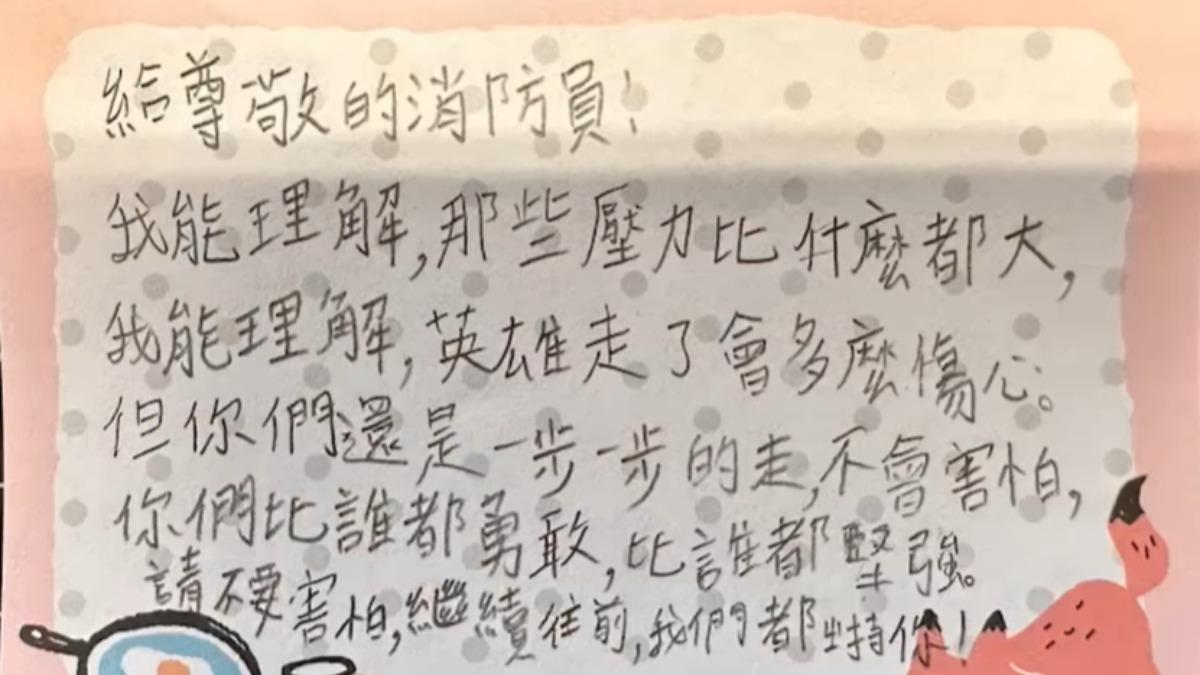 給尊敬的消防員!
我能理解,那些壓力比什麼都大,
我能理解,英雄走了會多麼傷心。
但你們還是一步一步的走,不會害怕,
你們比誰都勇敢,比誰都堅強。
請不要害怕,繼續往前,我們都支持你!